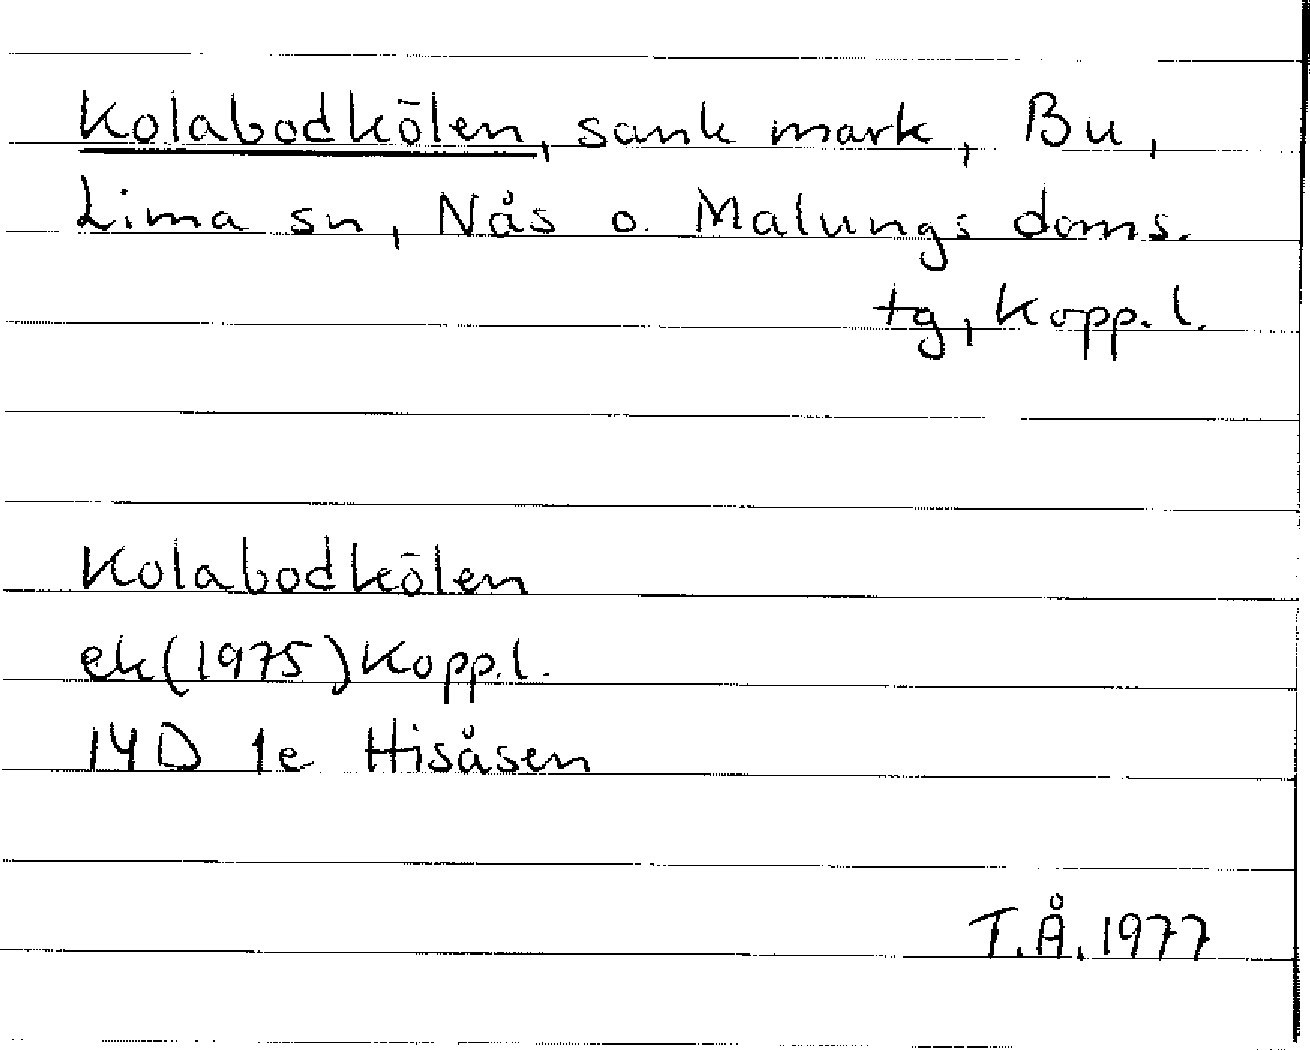 Kolabodkölen, sank mark, Bu,
Lima sn, Nås o. Malungs doms.
tg, Kopp. l.
Kolabodkölen
ek (1975) Kopp. l.
14D 1e Hisåsen
T.Å. 1977